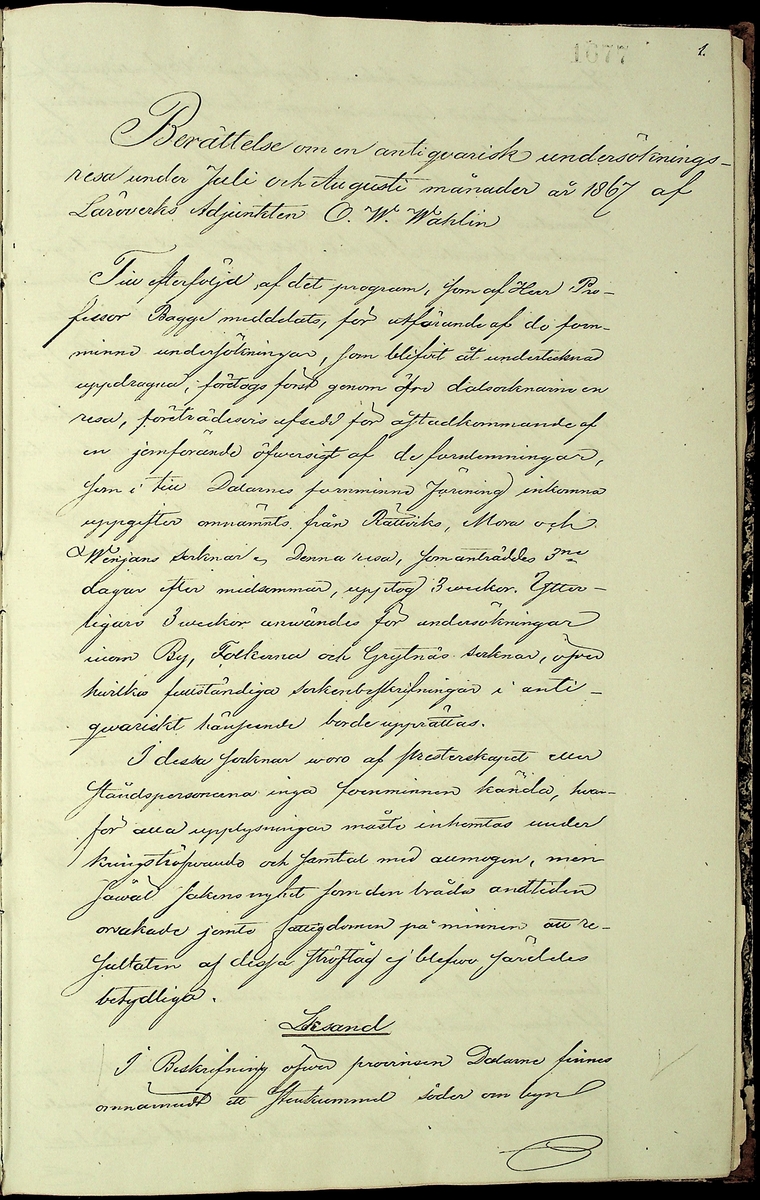 1677
1.
Berättelse om en antiqvarisk undersöknings-
resa under Juli och Augusti månader år 1867 af
Läroverks Adjunkten O. W. Wahlin
Till efterföljd af det program, som af Herr Pro-
fessor Bagge meddelats, för utförande af de forn-
minne undersökningar, som blifvit åt undertecknad
uppdragna, företogs först genom öfre dalsocknarne en
resa, företrädesvis afsedd för åstadkommande af
en jemförande öfversigt af de fornlemningar,
som i till Dalarnes fornminne förening inkomna
uppgifter omnämnts från Rättviks, Mora och
Wenjans socknar. Denna resa, som anträddes 3ne
dagar efter midsommar, upptog 3 veckor. Ytter-
ligare 3 veckor användes för undersökningar
inom By, Folkerna och Grytnäs socknar, öfver
hvilka fullständiga sockenbeskrifningar i anti-
qvariskt hänseende borde upprättas.
I dessa socknar woro af presterskapet eller
ståndspersonerna inga fornminnen kända, hvar-
för alla upplysningar måste inhemtas under
kringströfvande och samtal med allmogen, men
såväl sakens nyhet som den bråda andtiden
orsakade jemte fattigdomen på minnen att re-
sultaten af dessa ströftåg ej blefvo särdeles
betydliga.
Leksand
I Beskrifning öfver provinsen Dalarne finnes
omnämndt ett Stenkummel söder om byn